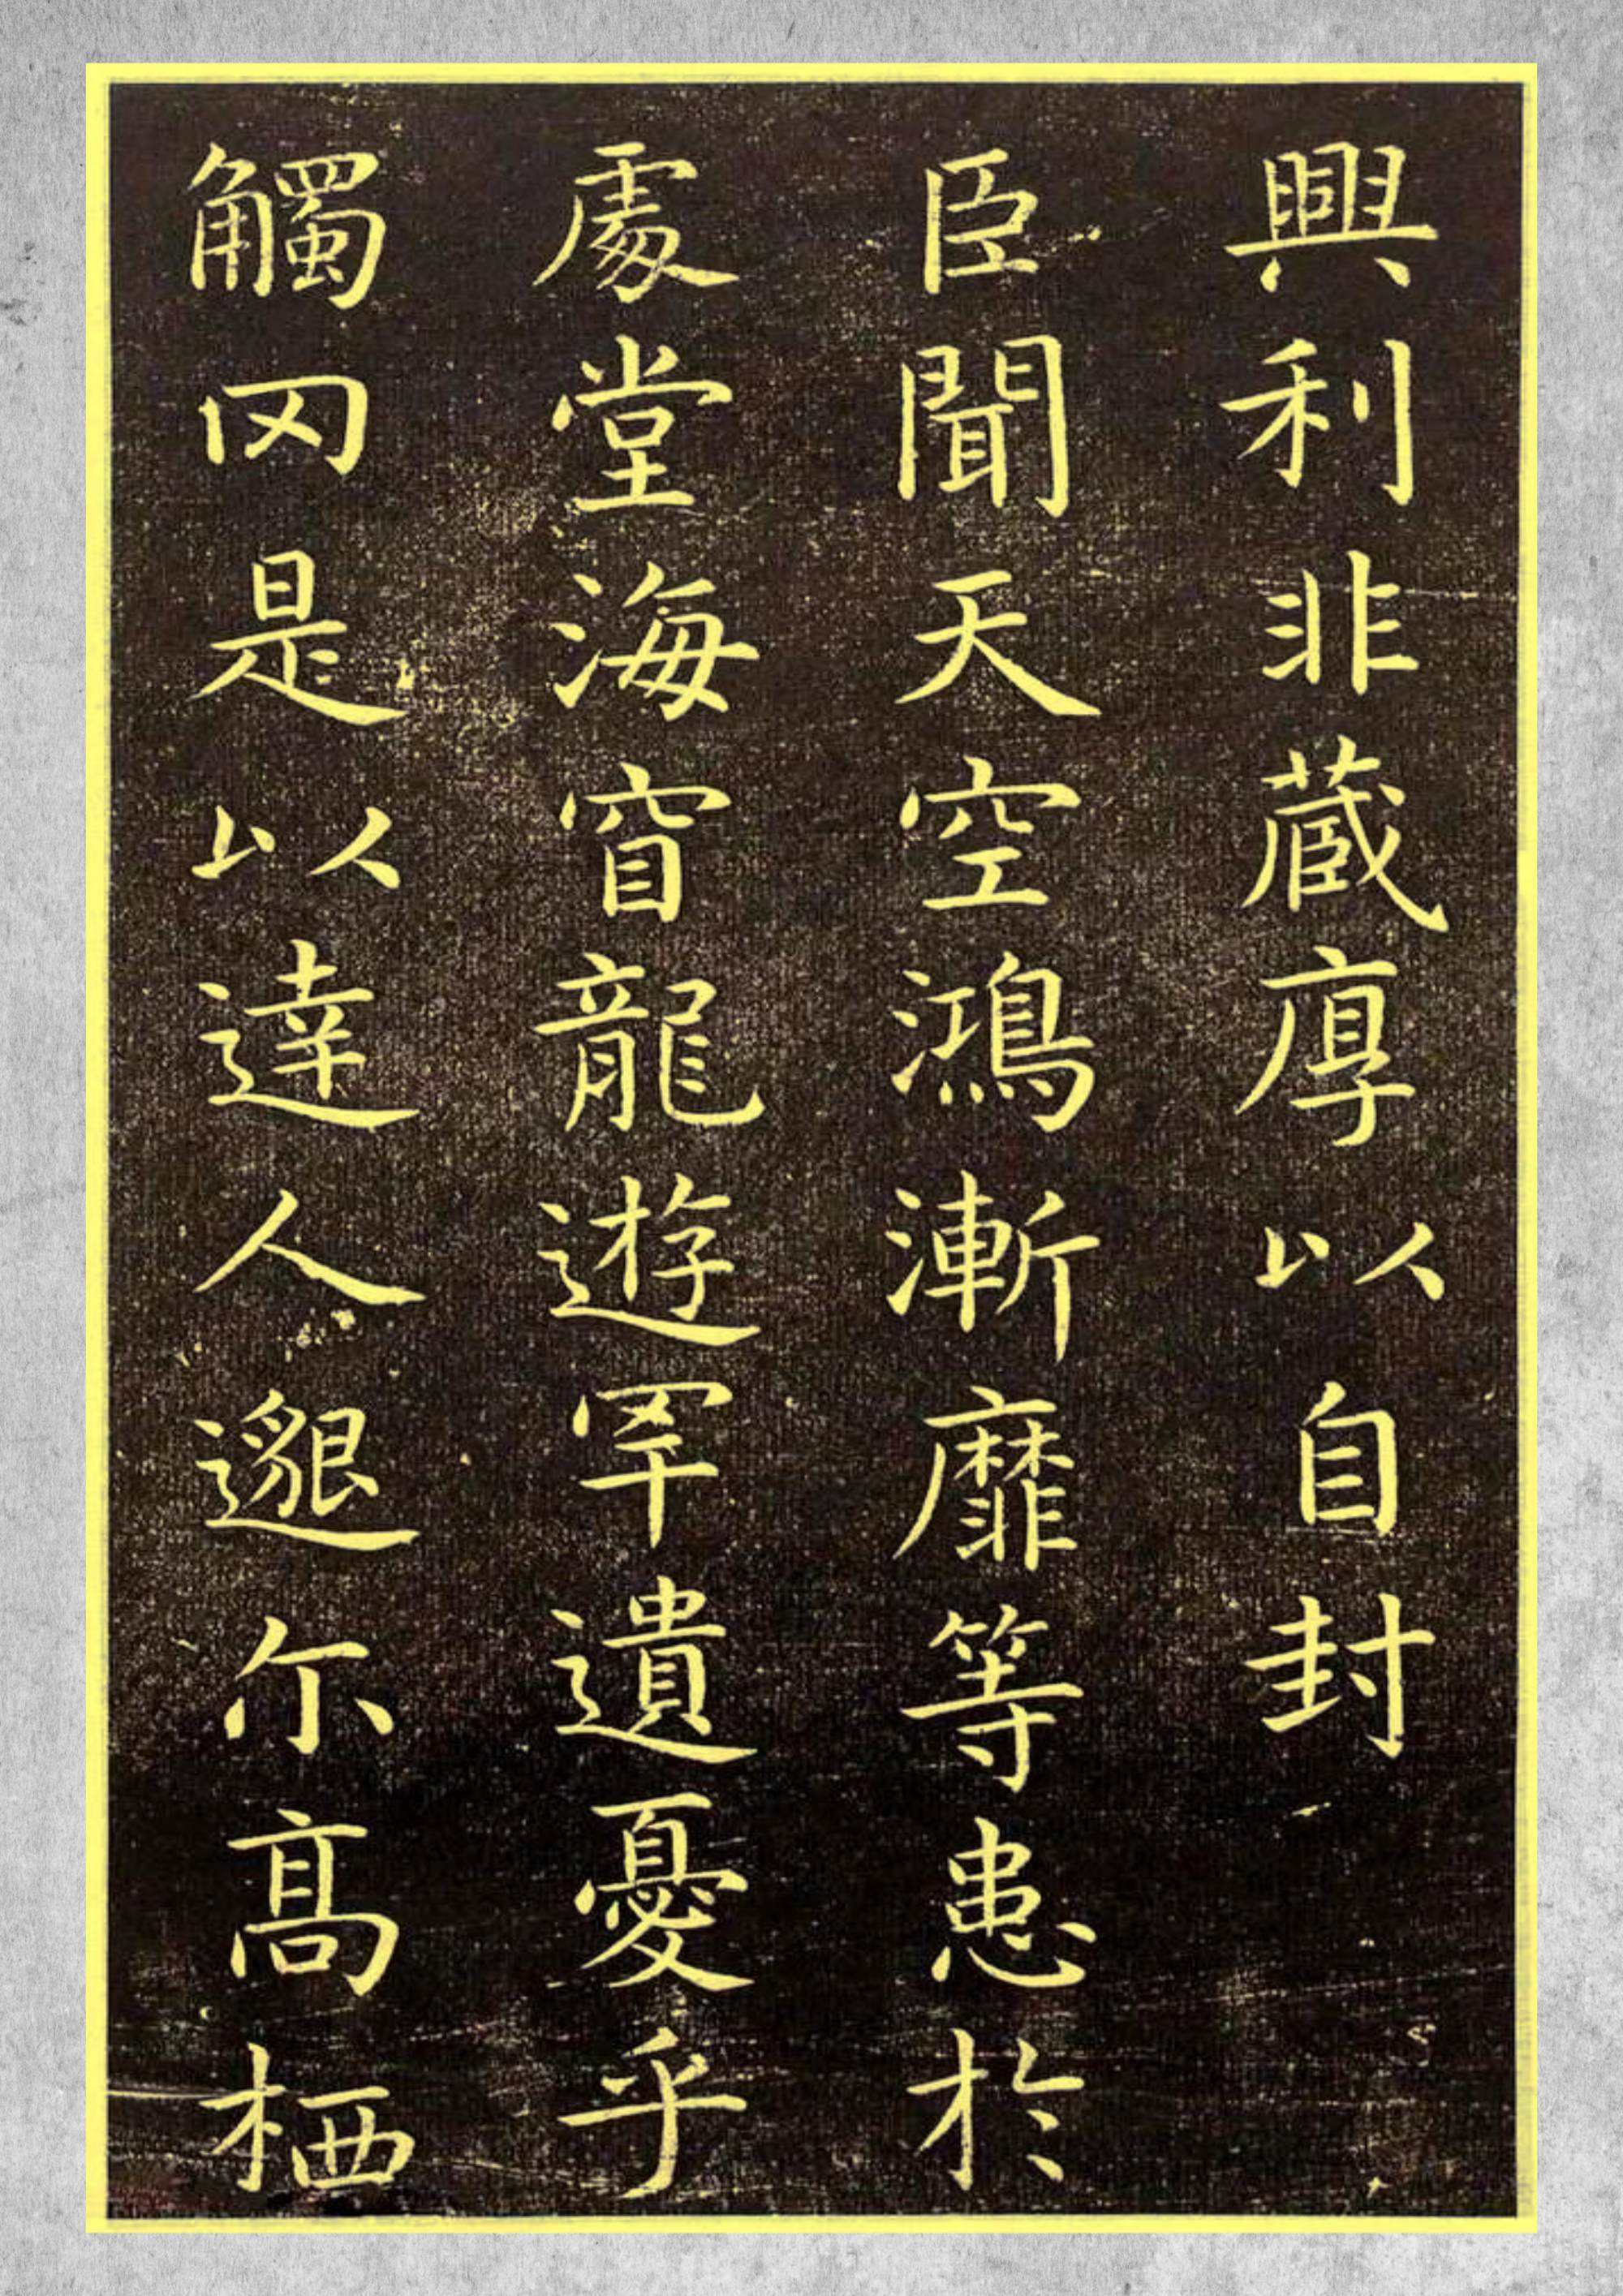 興利非藏厚以自封
臣聞天空鴻漸靡等患於
處堂海窅龍遊罕遺憂乎
觸罔是以達人邈尒高栖